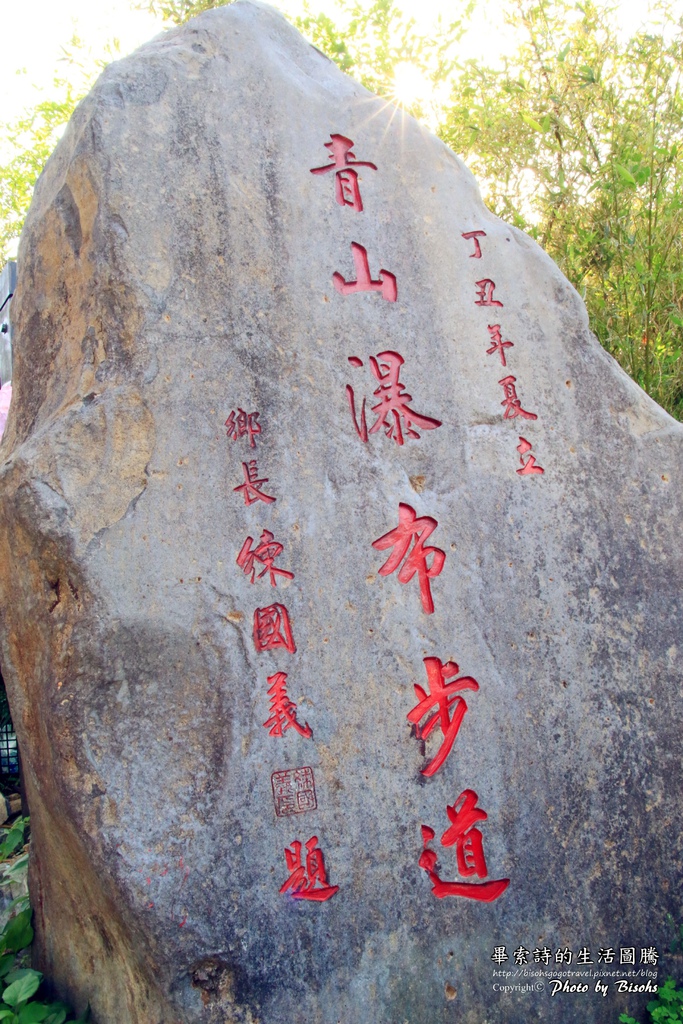 丁丑年夏立
青山瀑布步道
鄉長練國義題
畢索詩的生活圖騰
http://bisohsgogotravel.pixnet.net/blog
Copyright © Photo by Bisohs